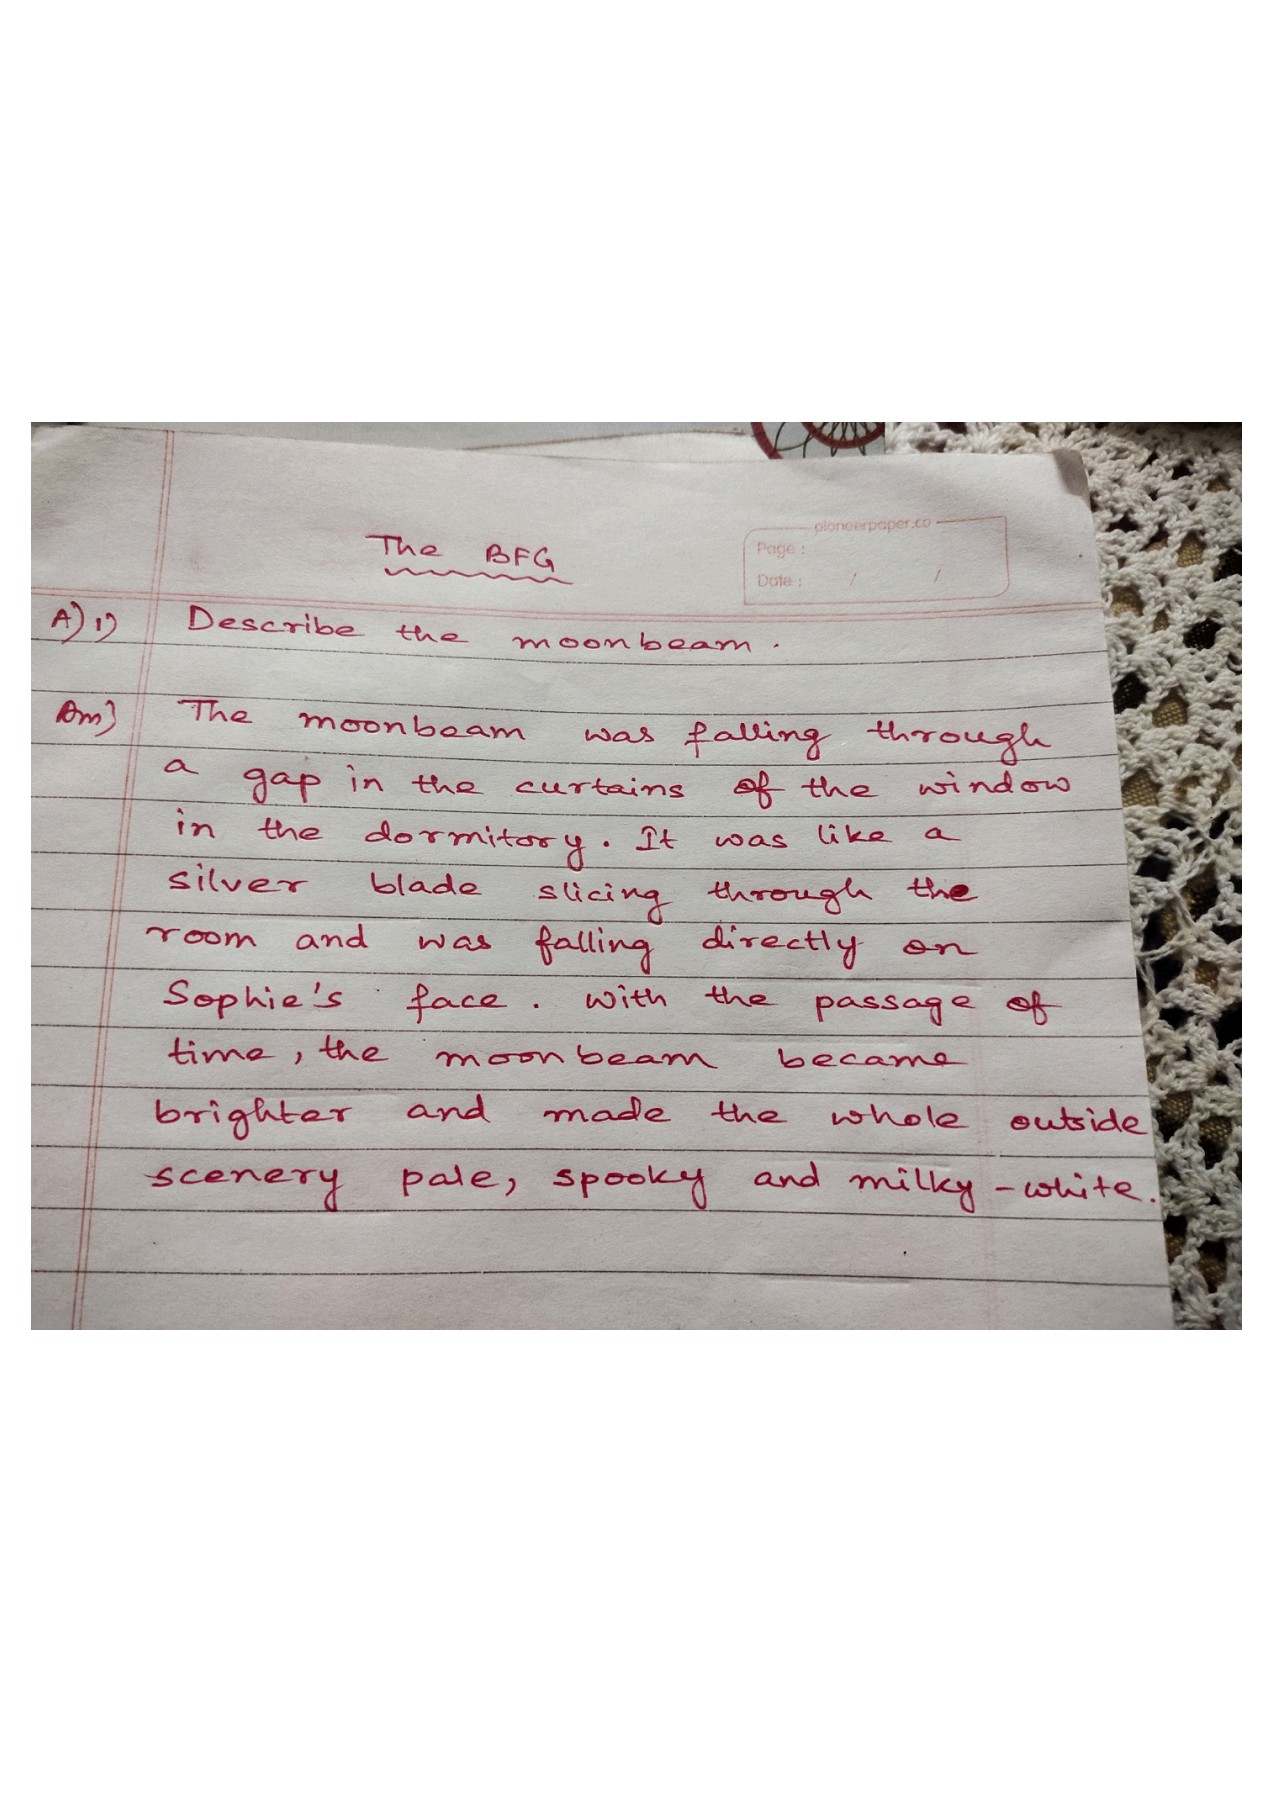 The BFG
pioneerpaper.co
Page :
Date : / /
A) 1) Describe the moonbeam.
Ans) The moonbeam was falling through
a gap in the curtains of the window
in the dormitory. It was like a
silver blade slicing through the
room and was falling directly on
Sophie's face. With the passage of
time, the moonbeam became
brighter and made the whole outside
scenery pale, spooky and milky-white.